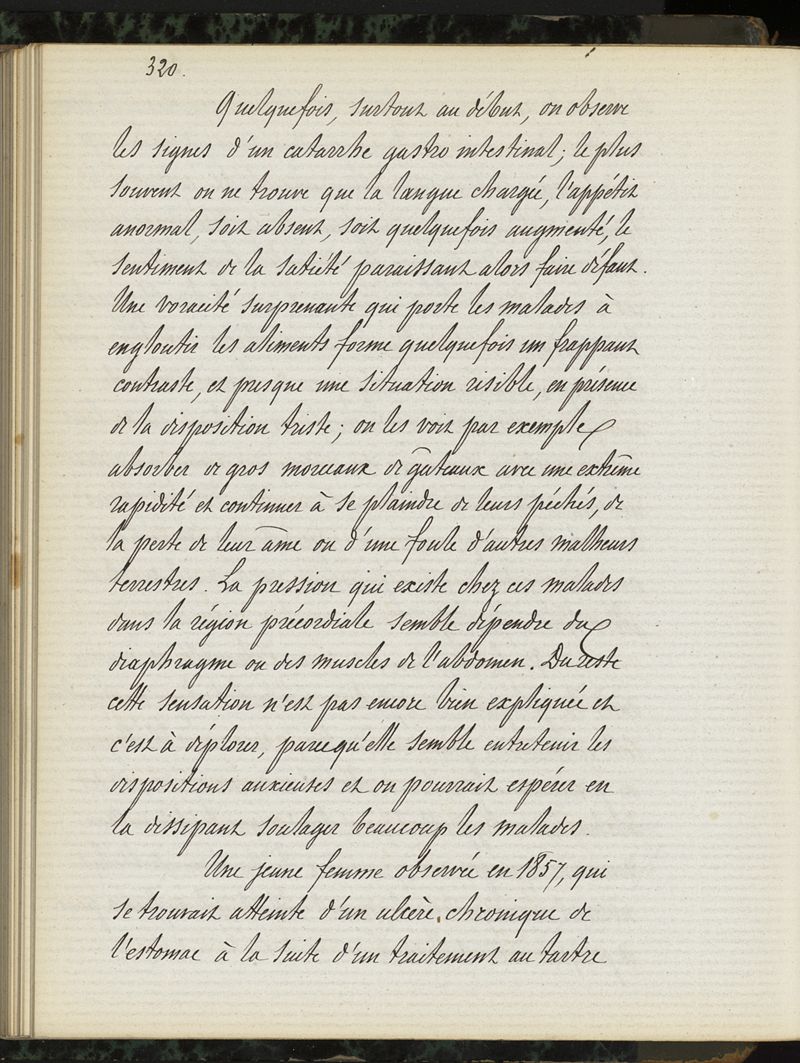 320.
Quelquefois, surtout au début, on observe
les signes d'un catarrhe gastro intestinal; le plus
souvent on ne trouve que la langue chargée, l'appétit
anormal, soit absent, soit quelquefois augmenté, le
sentiment de la satiété paraissant alors faire défaut.
Une voracité surprenante qui porte les malades à
engloutir les aliments forme quelquefois un frappant
contraste, et presque une situation risible, en présence
de la disposition triste; on les voit par exemple
absorber de gros morceaux de gâteaux avec une extrême
rapidité et continuer à se plaindre de leurs péchés, de
la perte de leur âme ou d'une foule d'autres malheurs
terrestres. La pression qui existe chez ces malades
dans la région précordiale semble dépendre du
diaphragme ou des muscles de l'abdomen. Du reste
cette sensation n'est pas encore bien expliquée et
c'est à déplorer, parcequ'elle semble entretenir les
dispositions anxieuses et on pourrait espérer en
la dissipant soulager beaucoup les malades.
Une jeune femme observée en 1857, qui
se trouvait atteinte d'un ulcère chronique de
l'estomac à la suite d'un traitement au tartre